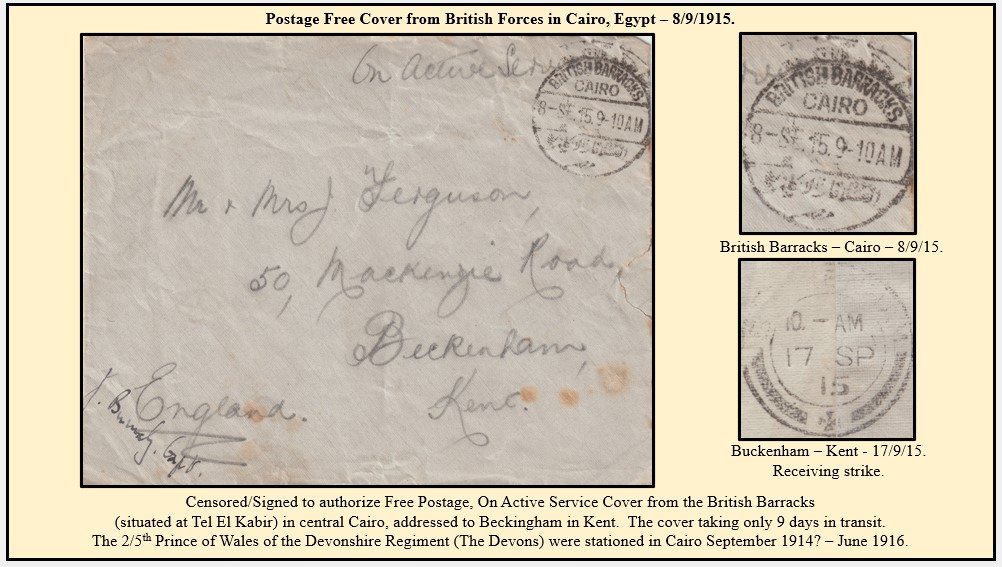 Postage Free Cover from British Forces in Cairo, Egypt – 8/9/1915.
On Active Servi
BRITISH BARRACKS
CAIRO
8-SE.15.9-10AM
Mr & Mrs J. Ferguson,
50, Mackenzie Road,
Beckenham,
Kent.
England.
Capt.
BRITISH BARRACKS
CAIRO
8-SE.15.9-10AM
British Barracks – Cairo – 8/9/15.
10.-AM
17 SP
15
Buckenham – Kent - 17/9/15.
Receiving strike.
Censored/Signed to authorize Free Postage, On Active Service Cover from the British Barracks
(situated at Tel El Kabir) in central Cairo, addressed to Beckingham in Kent. The cover taking only 9 days in transit.
The 2/5th Prince of Wales of the Devonshire Regiment (The Devons) were stationed in Cairo September 1914? – June 1916.